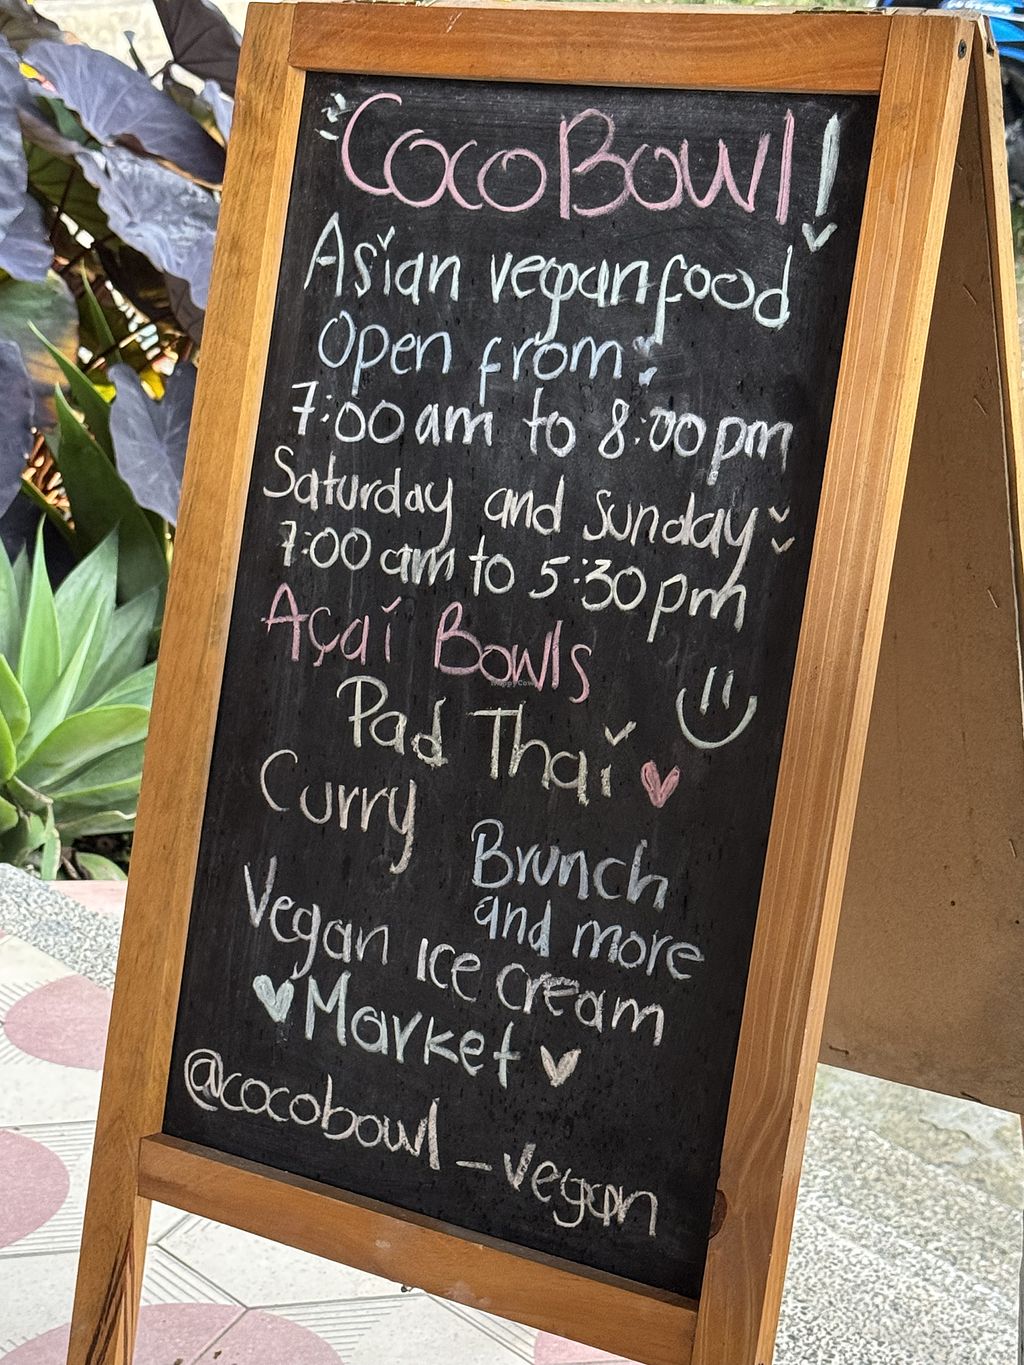 CocoBowl!
Asian vegan food
Open from:
7:00 am to 8:00 pm
Saturday and Sunday
7:00 am to 5:30 pm
Açaí Bowls
HappyCow
Pad Thai
Curry
Brunch
and more
Vegan Ice cream
Market
@cocobowl_vegan